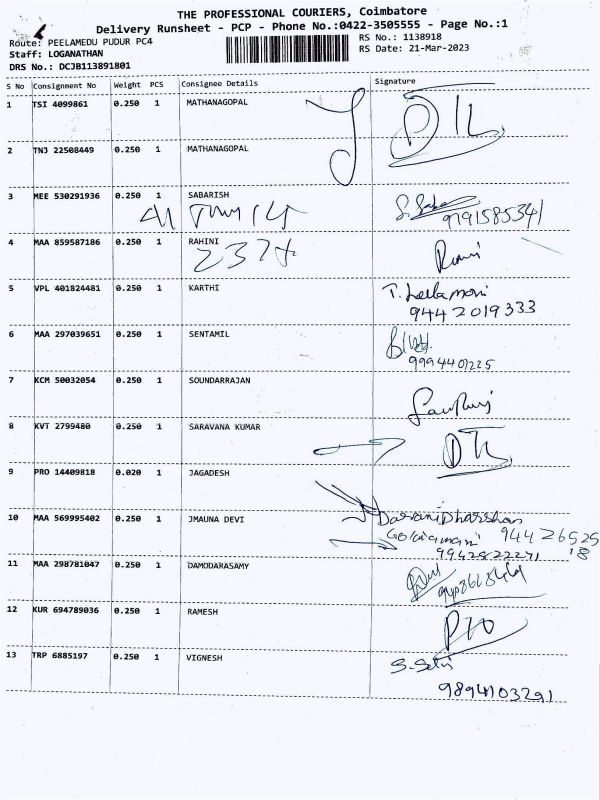 THE PROFESSIONAL COURIERS, Coimbatore
Delivery Runsheet - PCP - Phone No.:0422-3505555 - Page No.:1
Route: PEELAMEDU PUDUR PC4
RS No.: 1138918
Staff: LOGANATHAN
RS Date: 21-Mar-2023
DRS No.: DCJB113891801
S No Consignment No Weight PCS Consignee Details Signature
1 TSI 4099861 0.250 1 MATHANAGOPAL
2 TNJ 22508449 0.250 1 MATHANAGOPAL
3 MEE 530291936 0.250 1 SABARISH
9791585341
4 MAA 859587186 0.250 1 RAHINI
5 VPL 401824481 0.250 1 KARTHI T. Leelamani
9442019333
6 MAA 297039651 0.250 1 SENTAMIL
7 KCM 50032054 0.250 1 SOUNDARRAJAN
8 KVT 2799480 0.250 1 SARAVANA KUMAR
9 PRO 14409818 0.020 1 JAGADESH
10 MAA 569995402 0.250 1 JMAUNA DEVI DaraniDharshan
11 MAA 298781047 0.250 1 DAMODARASAMY
12 KUR 694789036 0.250 1 RAMESH
13 TRP 6885197 0.250 1 VIGNESH
9894103291